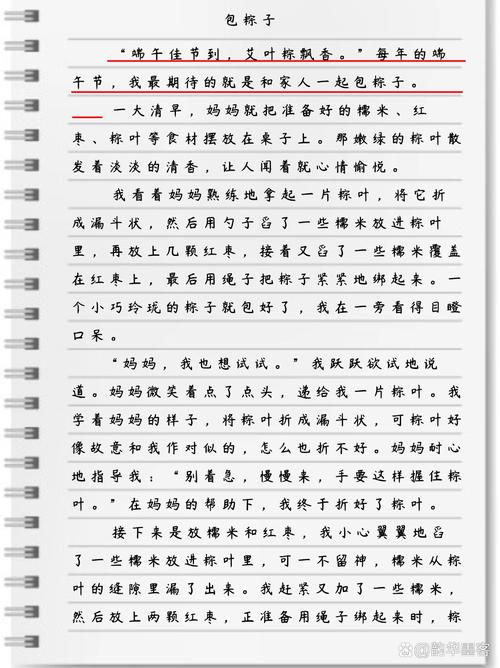 包粽子
“端午佳节到，艾叶粽飘香。”每年的端
午节，我最期待的就是和家人一起包粽子。
一大清早，妈妈就把准备好的糯米、红
枣、粽叶等食材摆放在桌子上。那嫩绿的粽叶散
发着淡淡的清香，让人闻着就心情愉悦。
我看着妈妈熟练地拿起一片粽叶，将它折
成漏斗状，然后用勺子舀了一些糯米放进粽叶
里，再放上几颗红枣，接着又舀了一些糯米覆盖
在红枣上，最后用绳子把粽子紧紧地绑起来。一
个小巧玲珑的粽子就包好了，我在一旁看得目瞪
口呆。
“妈妈，我也想试试。”我跃跃欲试地说
道。妈妈微笑着点了点头，递给我一片粽叶。我
学着妈妈的样子，将粽叶折成漏斗状，可粽叶好
像故意和我作对似的，怎么也折不好。妈妈耐心
地指导我：“别着急，慢慢来，手要这样握住粽
叶。”在妈妈的帮助下，我终于折好了粽叶。
接下来是放糯米和红枣，我小心翼翼地舀
了一些糯米放进粽叶里，可一不留神，糯米从粽
叶的缝隙里漏了出来。我赶紧又加了一些糯米，
然后放上两颗红枣，正准备用绳子绑起来时，粽